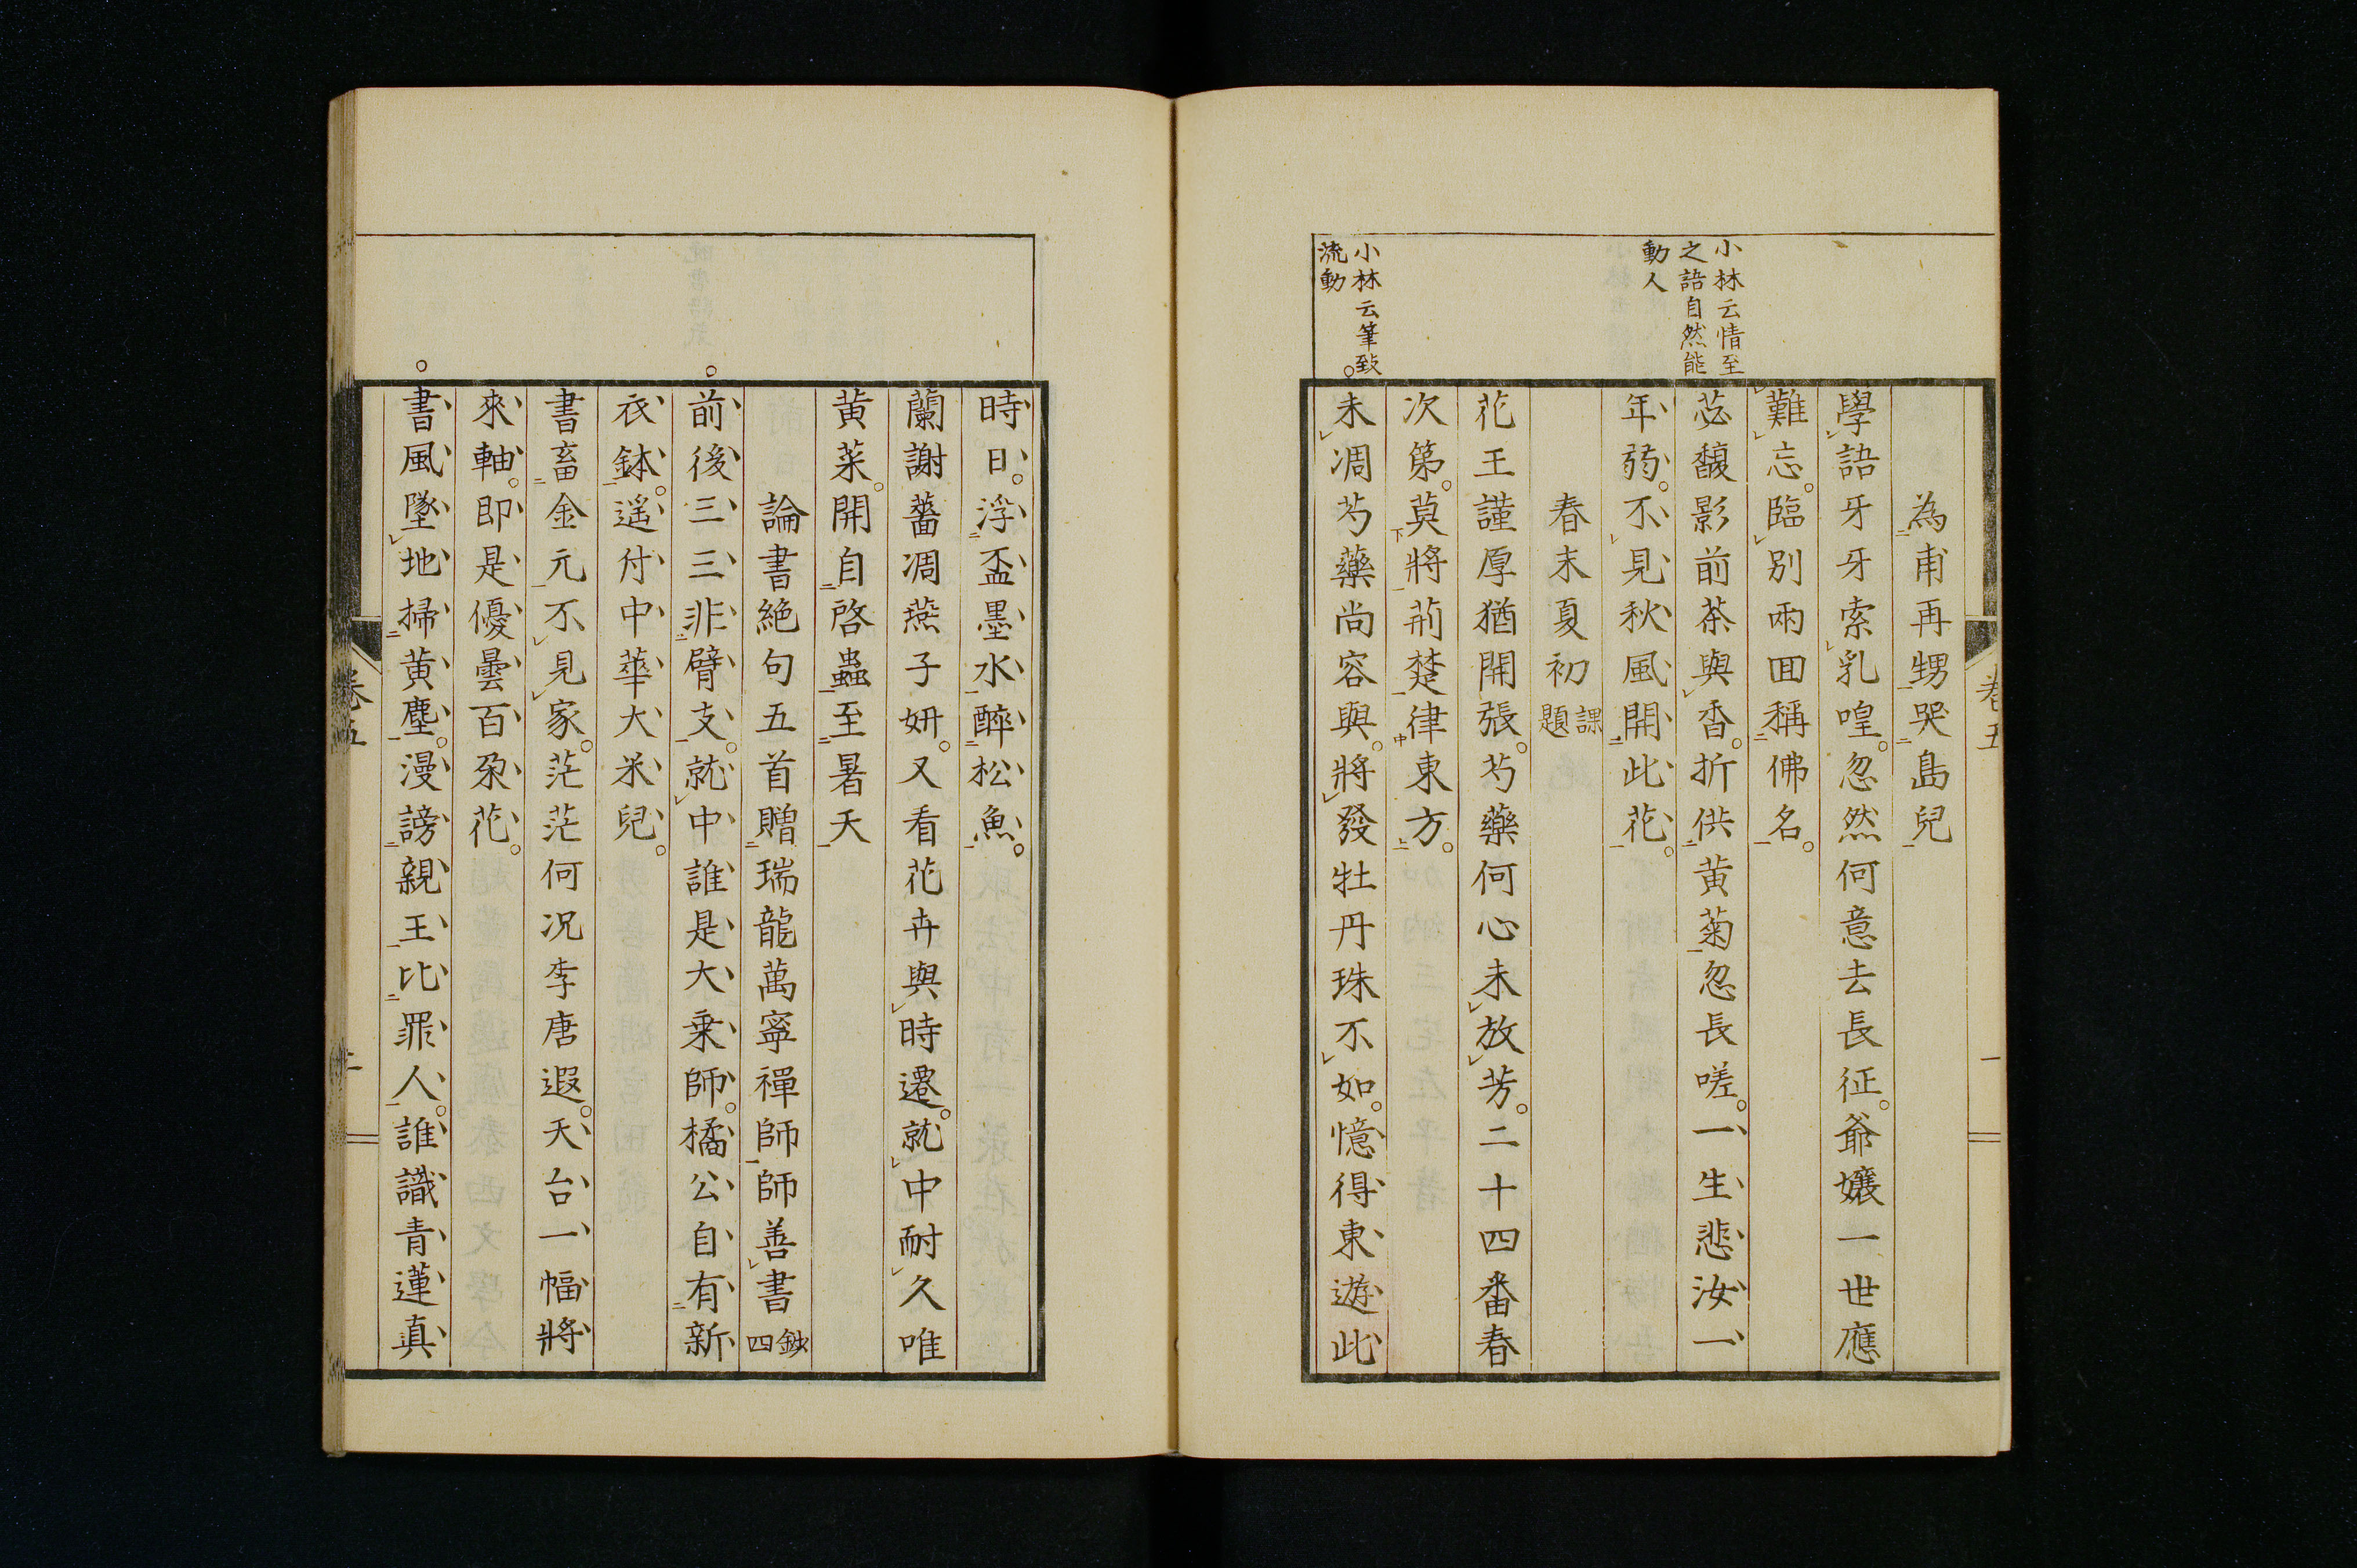 小林云情至
之語自然能
動人
為甫再甥哭島兒
學語牙牙索乳喤忽然何意去長征爺孃一世應
難忘臨別兩囬稱佛名
苾馥影前茶與香折供黄菊忽長嗟一生悲汝一
年弱不見秋風開此花
春末夏初課題
花王謹厚猶開張芍藥何心未放芳二十四番春
次第莫將荊楚律東方
小林云筆致
流動
未凋芍藥尚容與將發牡丹珠不如憶得東遊此
時日浮盃墨水醉松魚
蘭謝薔凋燕子妍又看花卉與時遷就中耐久唯
黄菜開自啓蟲至暑天
論書絶句五首贈瑞龍萬寧禪師師善書鈔四
前後三三非臂支就中誰是大乗師橘公自有新
衣鉢遥付中華大米兒
書畜金元不見家茫茫何況李唐遐天台一幅將
來軸即是優曇百朶花
書風墜地掃黄塵漫謗親王比罪人誰識青蓮真
卷五